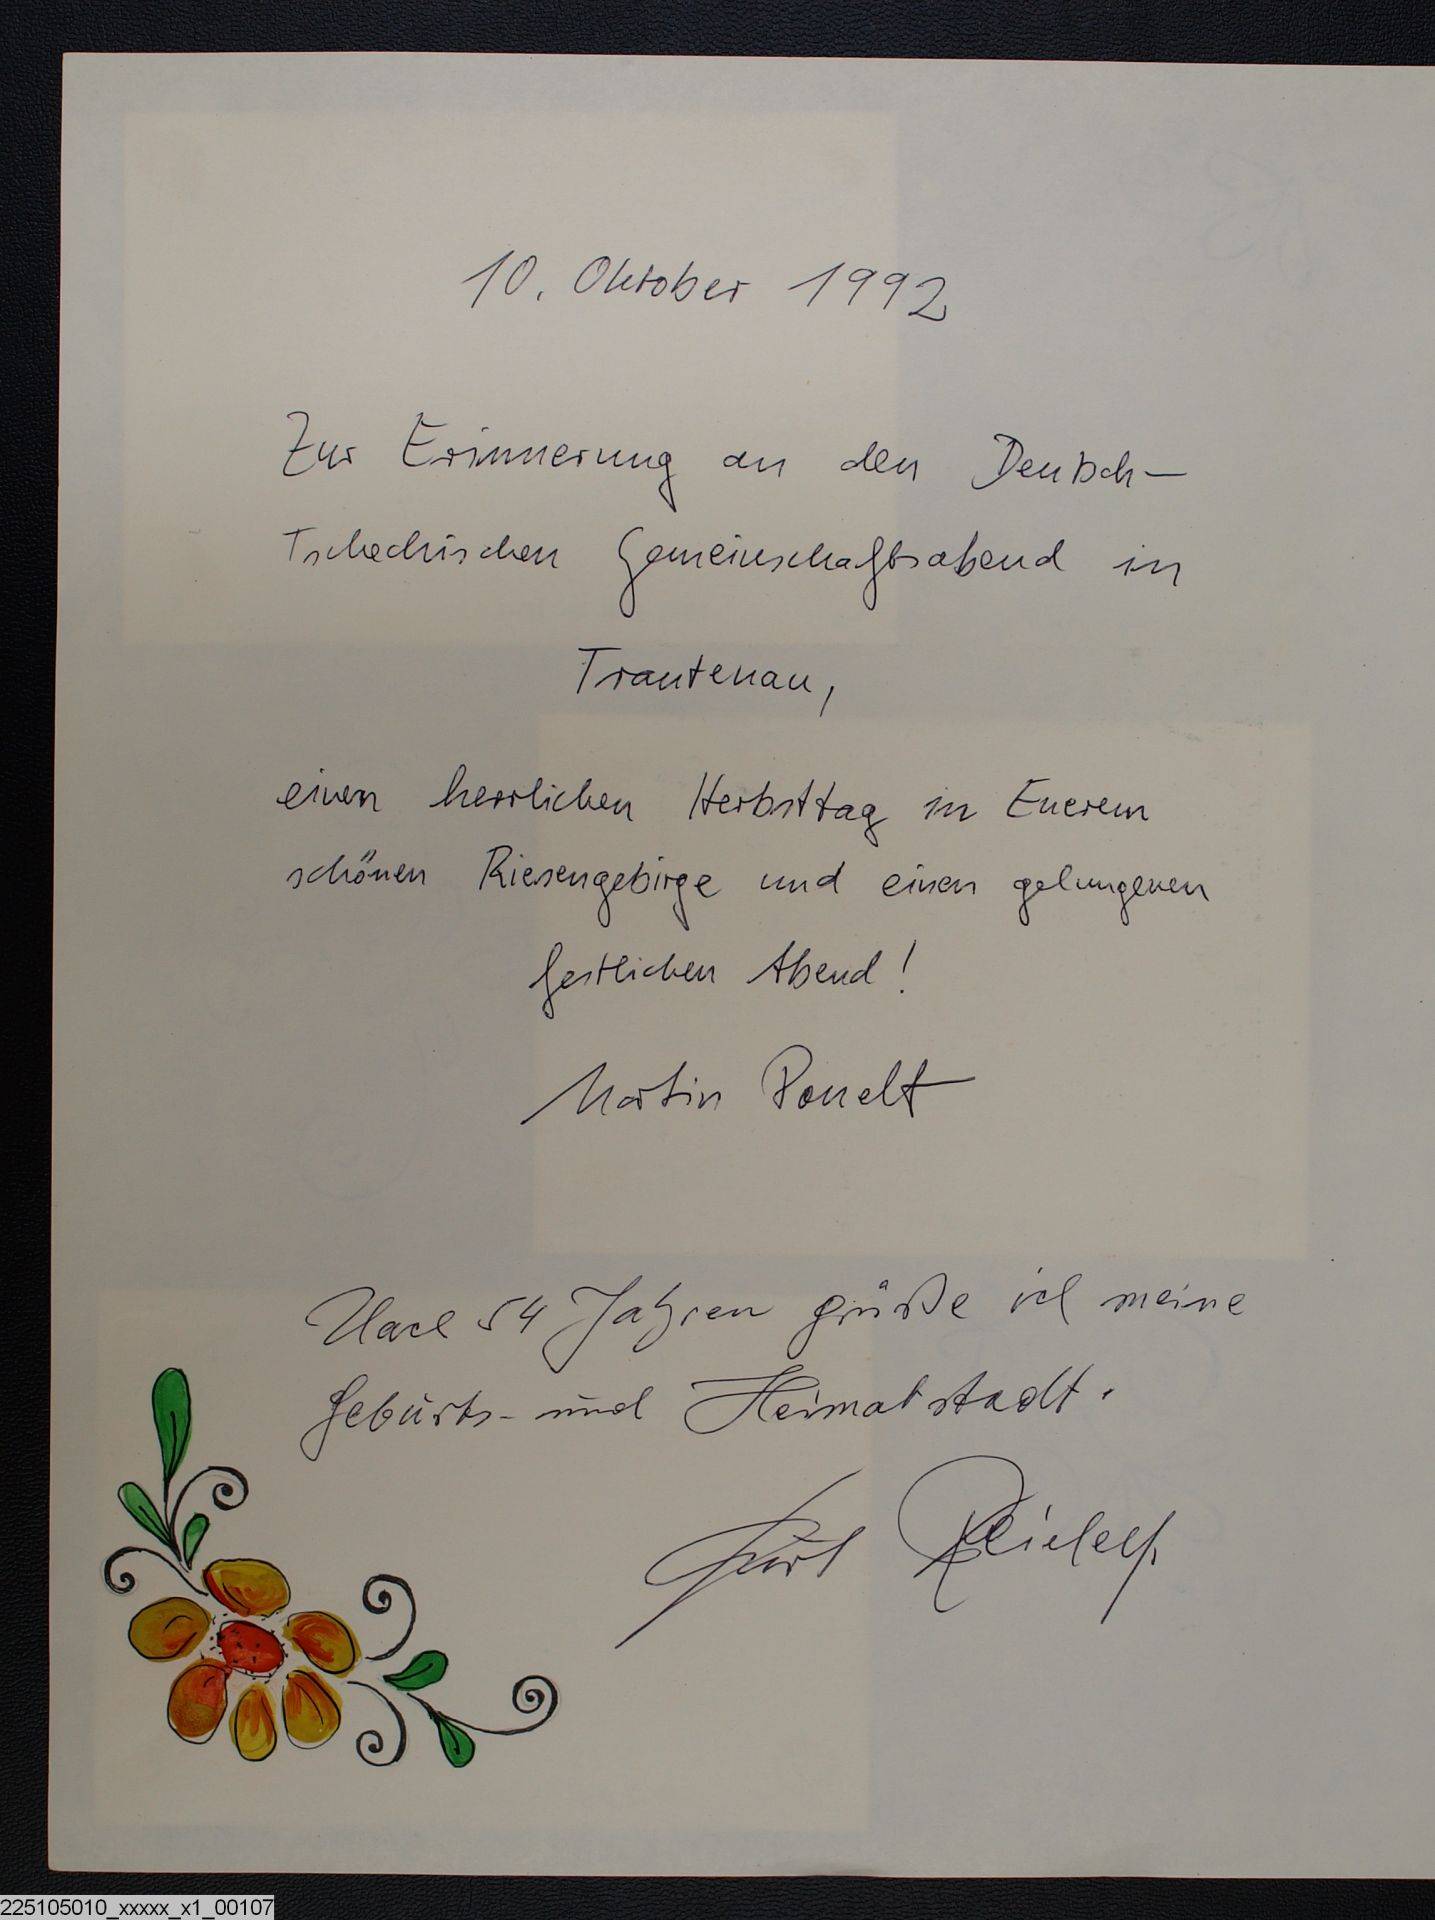 10. Oktober 1992
Zur Erinnerung an den Deutsch-
Tschechischen Gemeinschaftsabend in
Trautenau,
einen herrlichen Herbsttag in Euerem
schönen Riesengebirge und einen gelungenen
festlichen Abend!
Martin
Nach 54 Jahren grüße ich meine
Geburts- und Heimatstadt.
Kurt
225105010_xxxxx_x1_00107